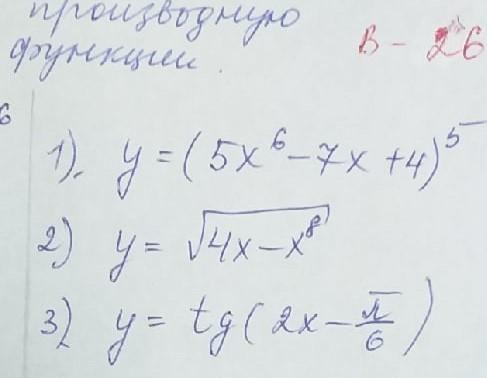 производную
функции.
В - 26
6
1). y = (5x⁶ - 7x + 4)⁵
2) y = √(4x - x⁸)
3) y = tg(2x - π/6)